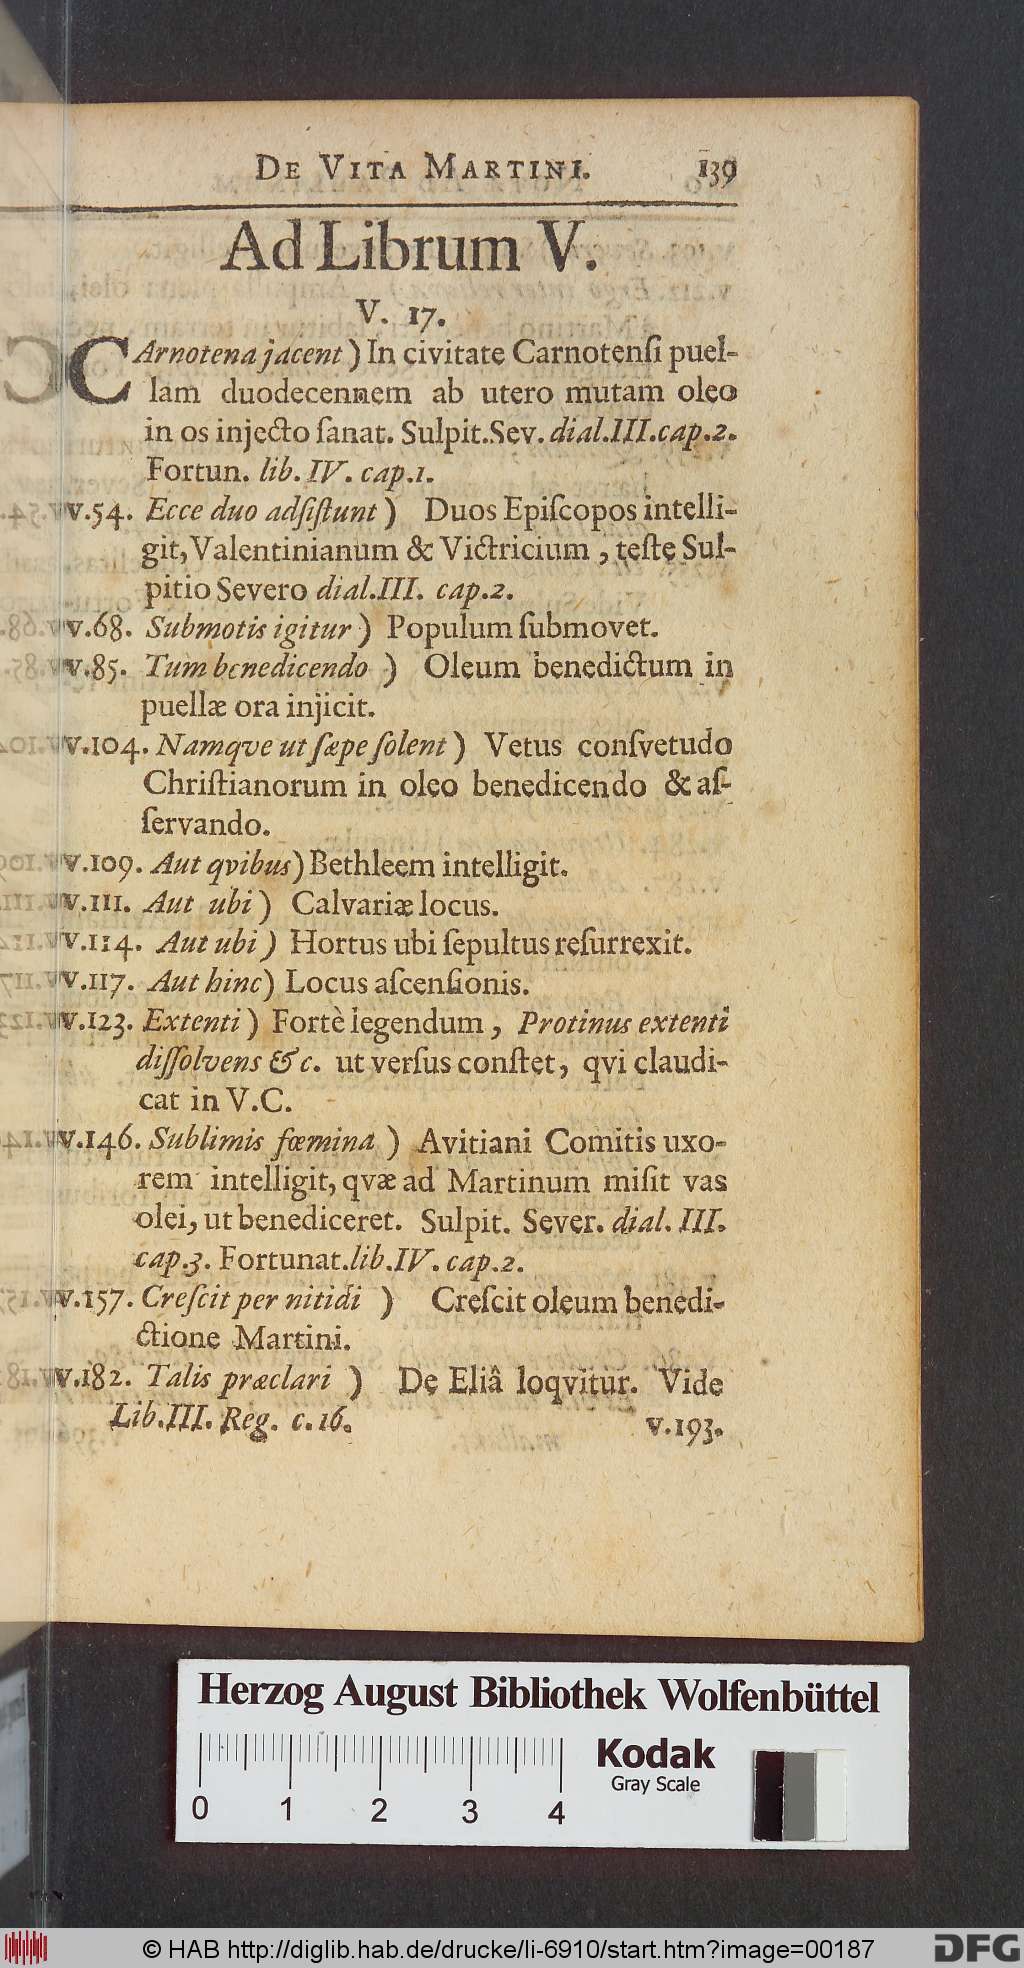 DE VITA MARTINI. 139
Ad Librum V.
V. 17.
CArnotena jacent) In civitate Carnotenſi puel-
lam duodecennem ab utero mutam oleo
in os injecto ſanat. Sulpit. Sev. dial. III. cap. 2.
Fortun. lib. IV. cap. 1.
V. 54. Ecce duo adſiſtunt) Duos Epiſcopos intelli-
git, Valentinianum & Victricium, teſte Sul-
pitio Severo dial. III. cap. 2.
V. 68. Submotis igitur) Populum ſubmovet.
V. 85. Tum benedicendo) Oleum benedictum in
puellæ ora injicit.
V. 104. Namqve ut ſæpe ſolent) Vetus conſvetudo
Chriſtianorum in oleo benedicendo & aſ-
ſervando.
V. 109. Aut qvibus) Bethleem intelligit.
V. 111. Aut ubi) Calvariæ locus.
V. 114. Aut ubi) Hortus ubi ſepultus reſurrexit.
V. 117. Aut hinc) Locus aſcenſionis.
V. 123. Extenti) Fortè legendum, Protinus extenti
diſſolvens &c. ut verſus conſtet, qvi claudi-
cat in V. C.
V. 146. Sublimis fœmina) Avitiani Comitis uxo-
rem intelligit, qvæ ad Martinum miſit vas
olei, ut benediceret. Sulpit. Sever. dial. III.
cap. 3. Fortunat. lib. IV. cap. 2.
V. 157. Creſcit per nitidi) Creſcit oleum benedi-
ctione Martini.
V. 182. Talis præclari) De Eliâ loqvitur. Vide
Lib. III. Reg. c. 16. v. 193.
Herzog August Bibliothek Wolfenbüttel
Kodak
Gray Scale
0 1 2 3 4
© HAB http://diglib.hab.de/drucke/li-6910/start.htm?image=00187
DFG